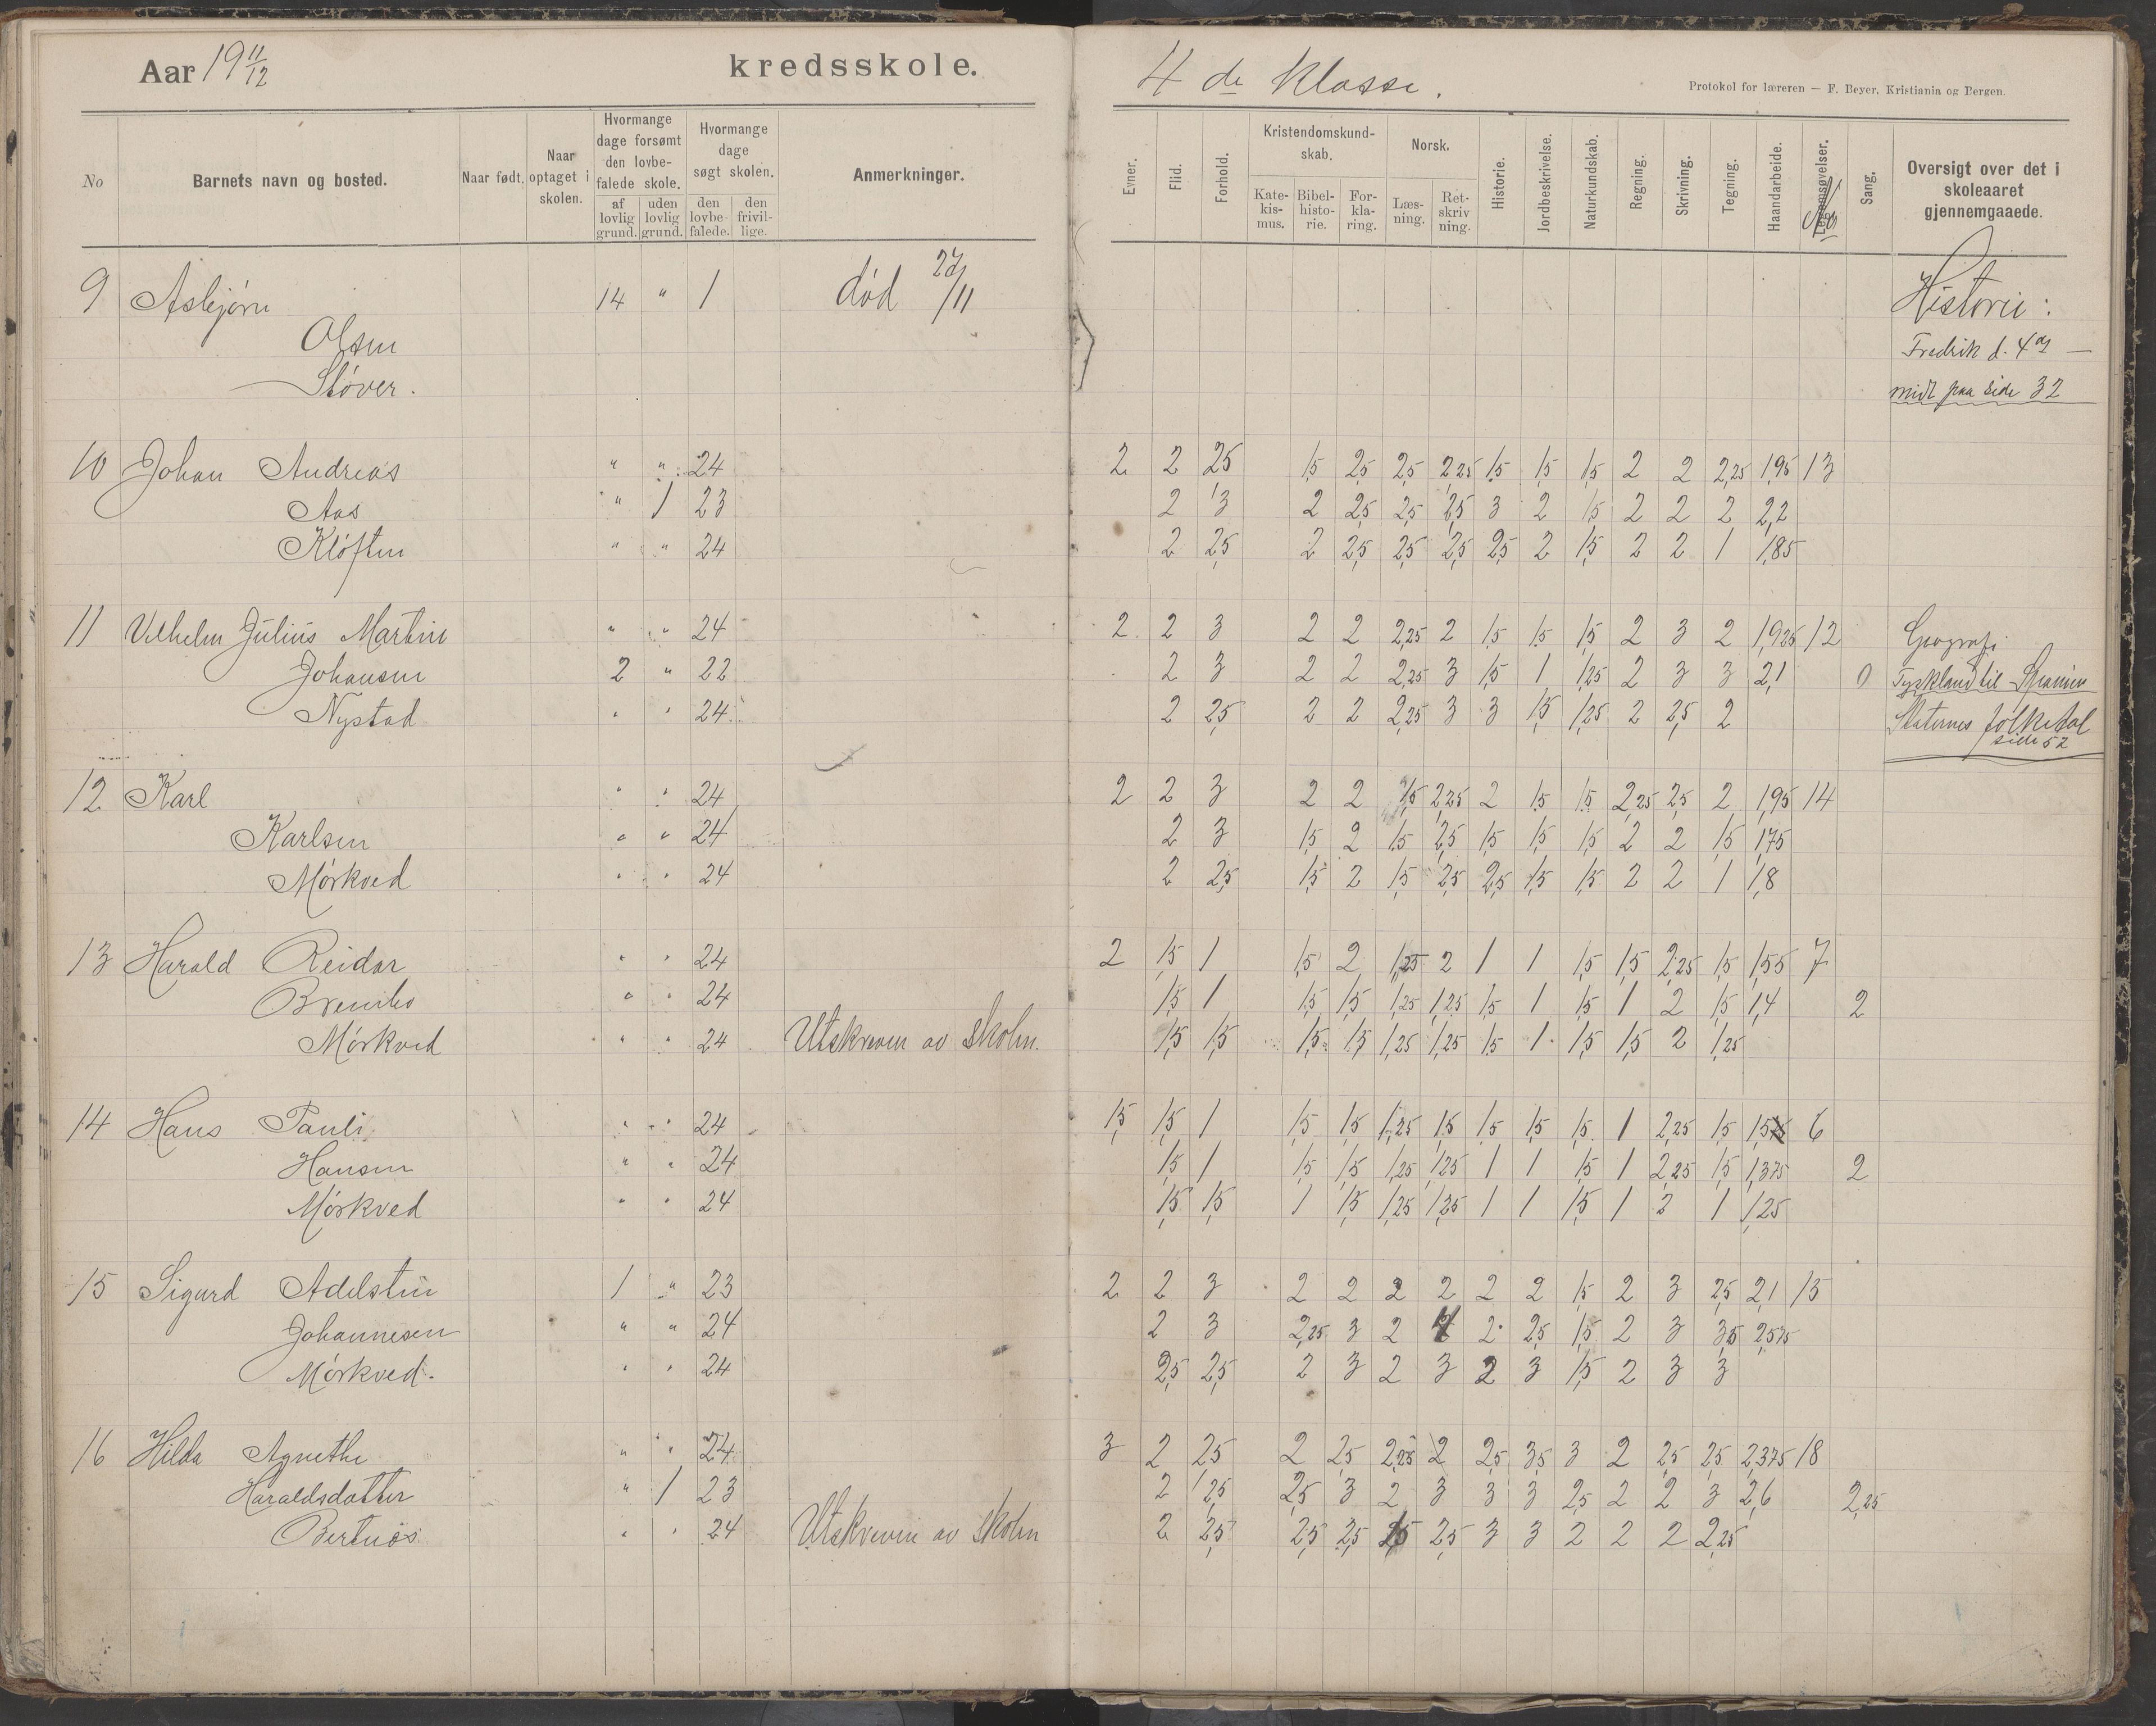 Aar 19 11/12 kredsskole.
4 de Klasse.
Protokol for læreren — F. Beyer, Kristiania og Bergen.
No
Barnets navn og bosted.
Naar født.
Naar optaget i skolen.
Hvormange dage forsømt den lovbefalede skole.
af lovlig grund.
uden lovlig grund.
Hvormange dage søgt skolen.
den lovbefalede.
den frivillige.
Anmerkninger.
Evner.
Flid.
Forhold.
Kristendomskundskab.
Katekismus.
Bibelhistorie.
Forklaring.
Norsk.
Læsning.
Retskrivning.
Historie.
Jordbeskrivelse.
Naturkundskab.
Regning.
Skrivning.
Tegning.
Haandarbeide.
Legemsøvelser.
Sang.
Oversigt over det i skoleaaret gjennemgaaede.
9 Asbjørn 14 " 1 død 27/11 Historie:
Olsen Fredrik d. 4de —
Støver. midt paa side 32
10 Johan Andreas " " 24 2 2 2,5 1,5 2,5 2,5 2,25 1,5 1,5 1,5 2 2 2,25 1,95 13
Aas " 1 23 2 3 2 2,5 2,5 2,5 3 2 1,5 2 2 2 2,2
Kløften " " 24 2 2,5 2 2,5 2,5 2,5 2,5 2 1,5 2 2 1 1,85
11 Vilhelm Julius Martin " " 24 2 2 3 2 2 2,25 2 1,5 1,5 1,5 2 3 2 1,925 12 Geografi.
Johansen 2 " 22 2 3 2 2 2,25 3 1,5 1 1,25 2 3 3 2,1 0 Tyskland til Spanien
Nystad " " 24 2 2,5 2 2 2,25 3 3 1,5 1,25 2 2,5 2 Staternes folketal
side 52
12 Karl " " 24 2 2 3 2 2 1,5 2,25 2 1,5 1,5 2,25 2,5 2 1,95 14
Karlsen " " 24 2 3 1,5 2 1,5 2,5 1,5 1,5 1,5 2 2 1,5 1,75
Mørkved " " 24 2 2,5 1,5 2 1,5 2,5 2,5 1,5 1,5 2 2 1 1,8
13 Harald Reidar " " 24 2 1,5 1 1,5 2 1,25 2 1 1 1,5 1,5 2,25 1,5 1,55 7
Brembo " " 24 1,5 1 1,5 1,5 1,25 1,25 1,5 1 1,5 1 2 1,5 1,4 2
Mørkved " " 24 Utskreven av skolen. 1,5 1,5 1,5 1,5 1,25 1,25 1,5 1 1,5 1,5 2 1,25
14 Hans Pauli " " 24 1,5 1,5 1 1,5 1,5 1,25 1,5 1,5 1,5 1,5 1 2,25 1,5 1,5 6
Hansen " " 24 1,5 1 1,5 1,5 1,25 1,25 1 1 1,5 1 2,25 1,5 1,375 2
Mørkved " " 24 1,5 1,5 1 1,5 1,25 1,25 1 1 1,5 1 2 1 1,25
15 Sigurd Adelstein 1 " 23 2 2 3 2 2 2 2 2 2 1,5 2 3 2,5 2,1 15
Johannesen " " 24 2 3 2,25 3 2 4 2 2,5 1,5 2 3 3,5 2,575
Mørkved. " " 24 2,5 2,5 2 3 2 3 2 3 1,5 2 3 3
16 Hilda Agnethe " " 24 3 2 2,5 2 2,5 2,25 2 2,5 3,5 3 2 2,5 2,5 2,375 18
Haraldsdatter " 1 23 2 2,5 2,5 3 2 3 3 3 2,5 2 2 3 2,6 2,25
Bertnes " " 24 Utskreven av skolen 2 2,5 2,5 2,5 1,5 2,5 3 3 2 2 2 2,25